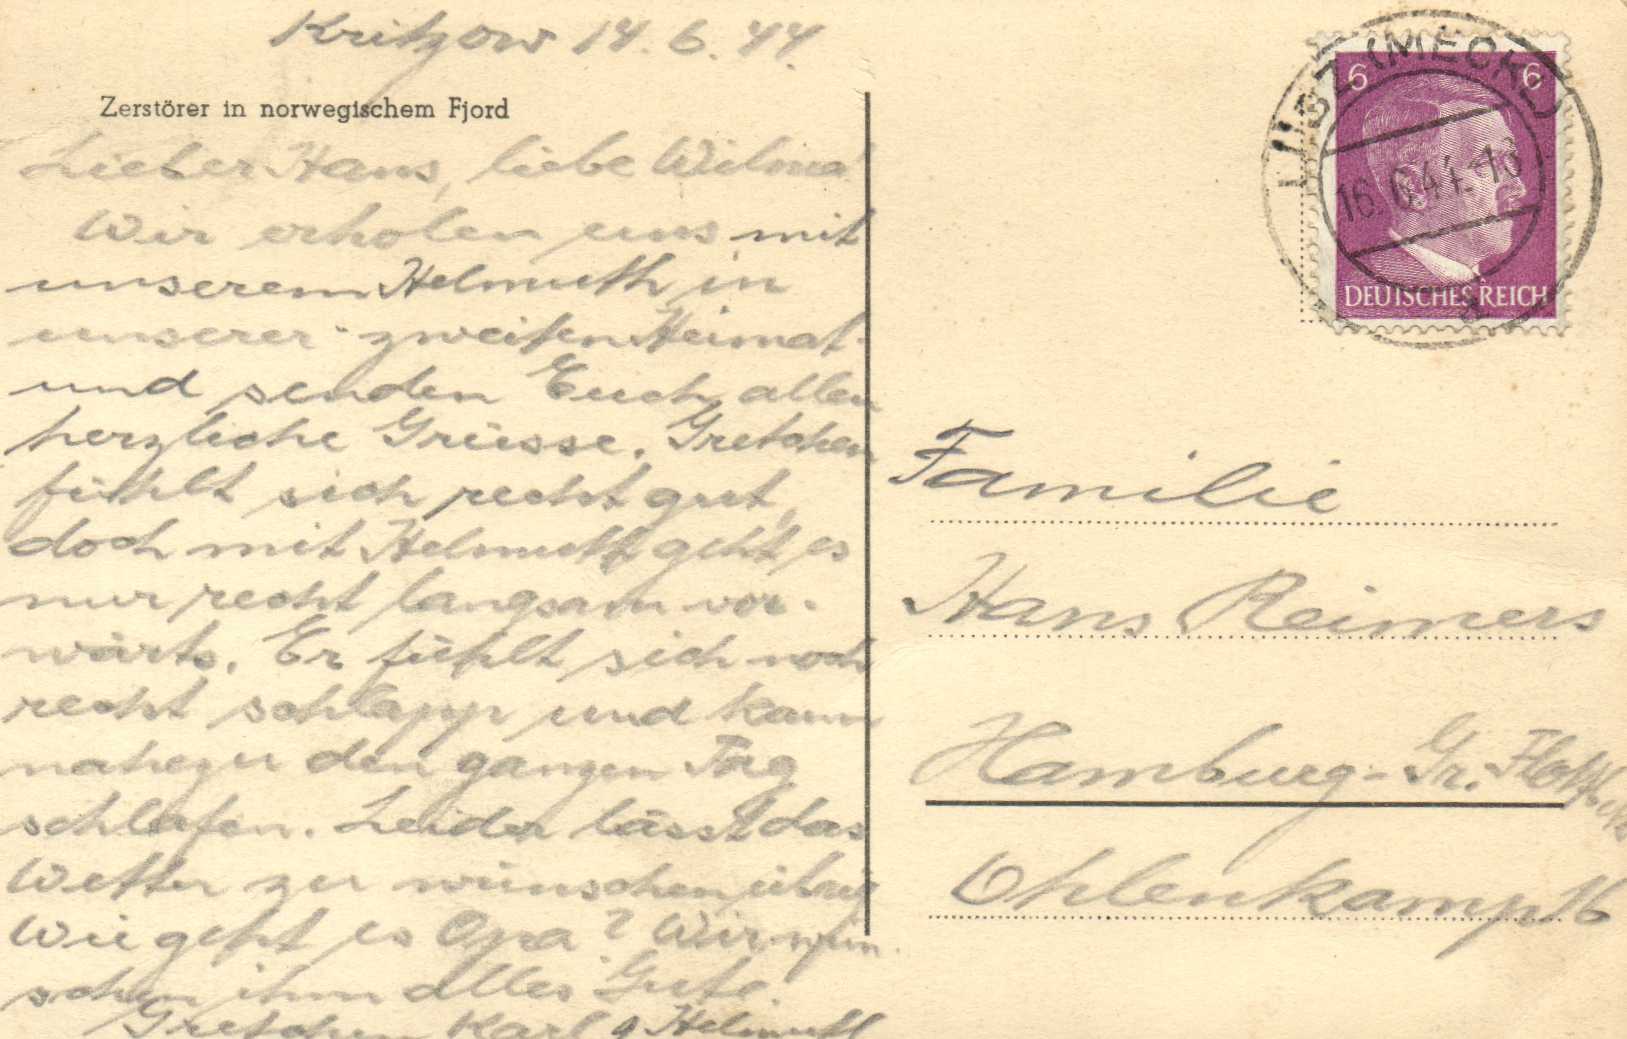 Kritzow 14.6.44.
Zerstörer in norwegischem Fjord
Lieber Hans, liebe Wilma!
Wir erholen uns mit
unserem Helmuth in
unserer zweiten Heimat
und senden Euch allen
herzliche Grüsse. Gretchen
fühlt sich recht gut,
doch mit Helmuth geht es
nur recht langsam vor-
wärts. Er fühlt sich noch
recht schlapp und kann
nahezu den ganzen Tag
schlafen. Leider lässt das
Wetter zu wünschen übrig
Wie geht es Opa? Wir wün-
schen ihm alles Gute.
Gretchen Karl Helmuth
6 6
LÜBZ (MECKL)
16.6.44.-18
a
DEUTSCHES REICH
Familie
Hans Reimers
Hamburg-Gr.-Flottbek
Ohlenkamp 16